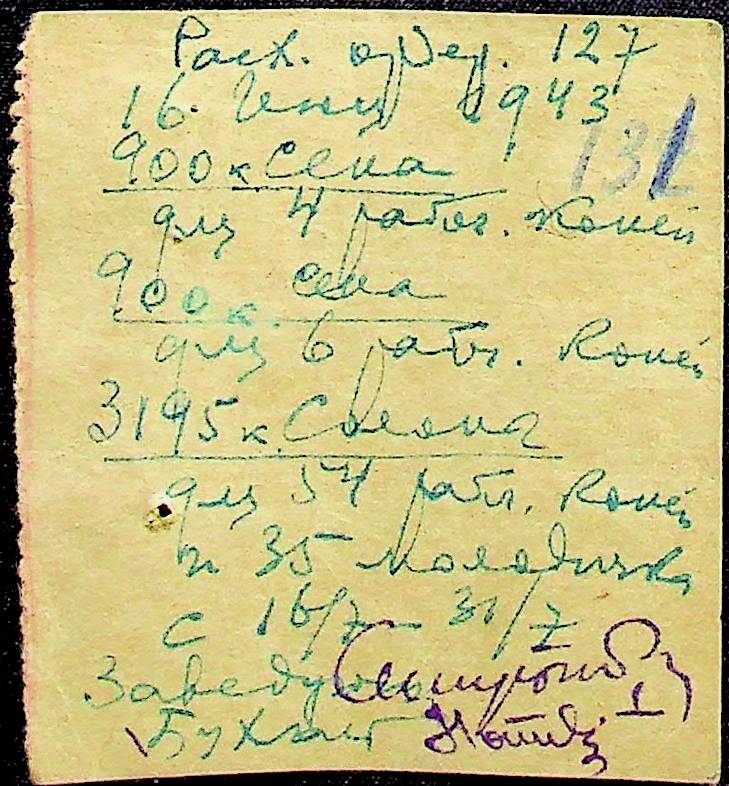 Расх. ордер. 127
16. Июля 1943
132
900 к Сена
для 4 рабоч. коней
900 к. сена
для 6 рабоч. коней
3195 к. Соломы
для 54 рабоч. коней
и 35 молодняка
с 16/7 - 31/7
Заведующ
Бухгалт